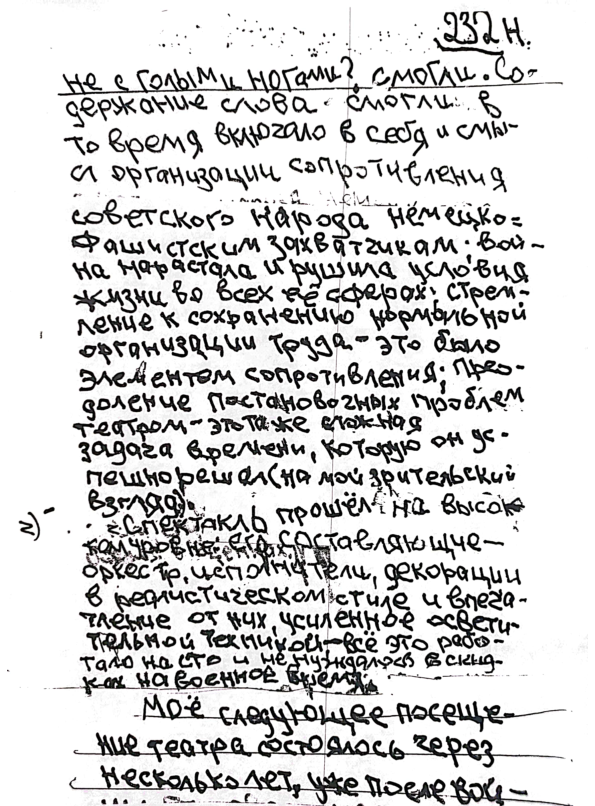 232 н.
не с голыми ногами?, смогли. Со-
держание слова смогли в
то время включало в себя и смы-
сл организации сопротивления
советского народа немецко=
фашистским захватчикам. Вой-
на нарастала и рушила условия
жизни во всех её сферах; стрем-
ление к сохранению нормальной
организации труда - это было
элементом сопротивления; прео-
доление постановочных проблем
театром - это также сложная
задача времени, которую он ус-
пешно решал (на мой зрительский
взгляд).
2) - Спектакль прошёл на высо
ком уровне: его составляющие -
оркестр, исполнители, декорации
в реалистическом стиле и впеча-
тление от них, усиленное освети-
тельной техникой - всё это рабо-
тало на сто и не нуждалось в скид-
ках на военное время.
Моё следующее посеще-
ние театра состоялось через
несколько лет, уже после вой-